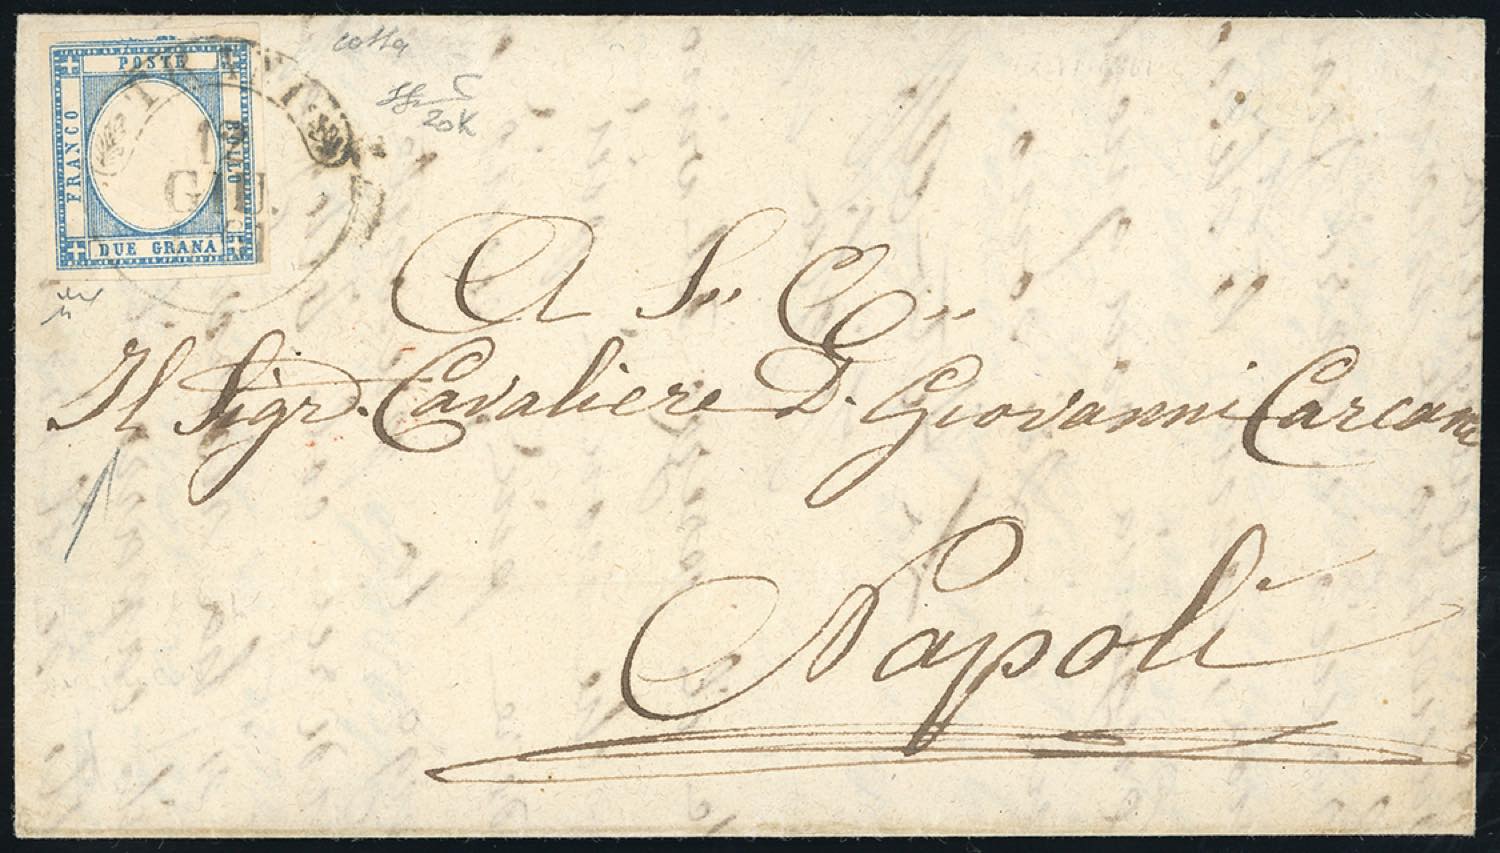 POSTE
FRANCO
BOLLO
DUE GRANA
GIU.
cotta
20K
A S. E.
Il Sigr. Cavaliere D. Giovanni Carcano
Napoli